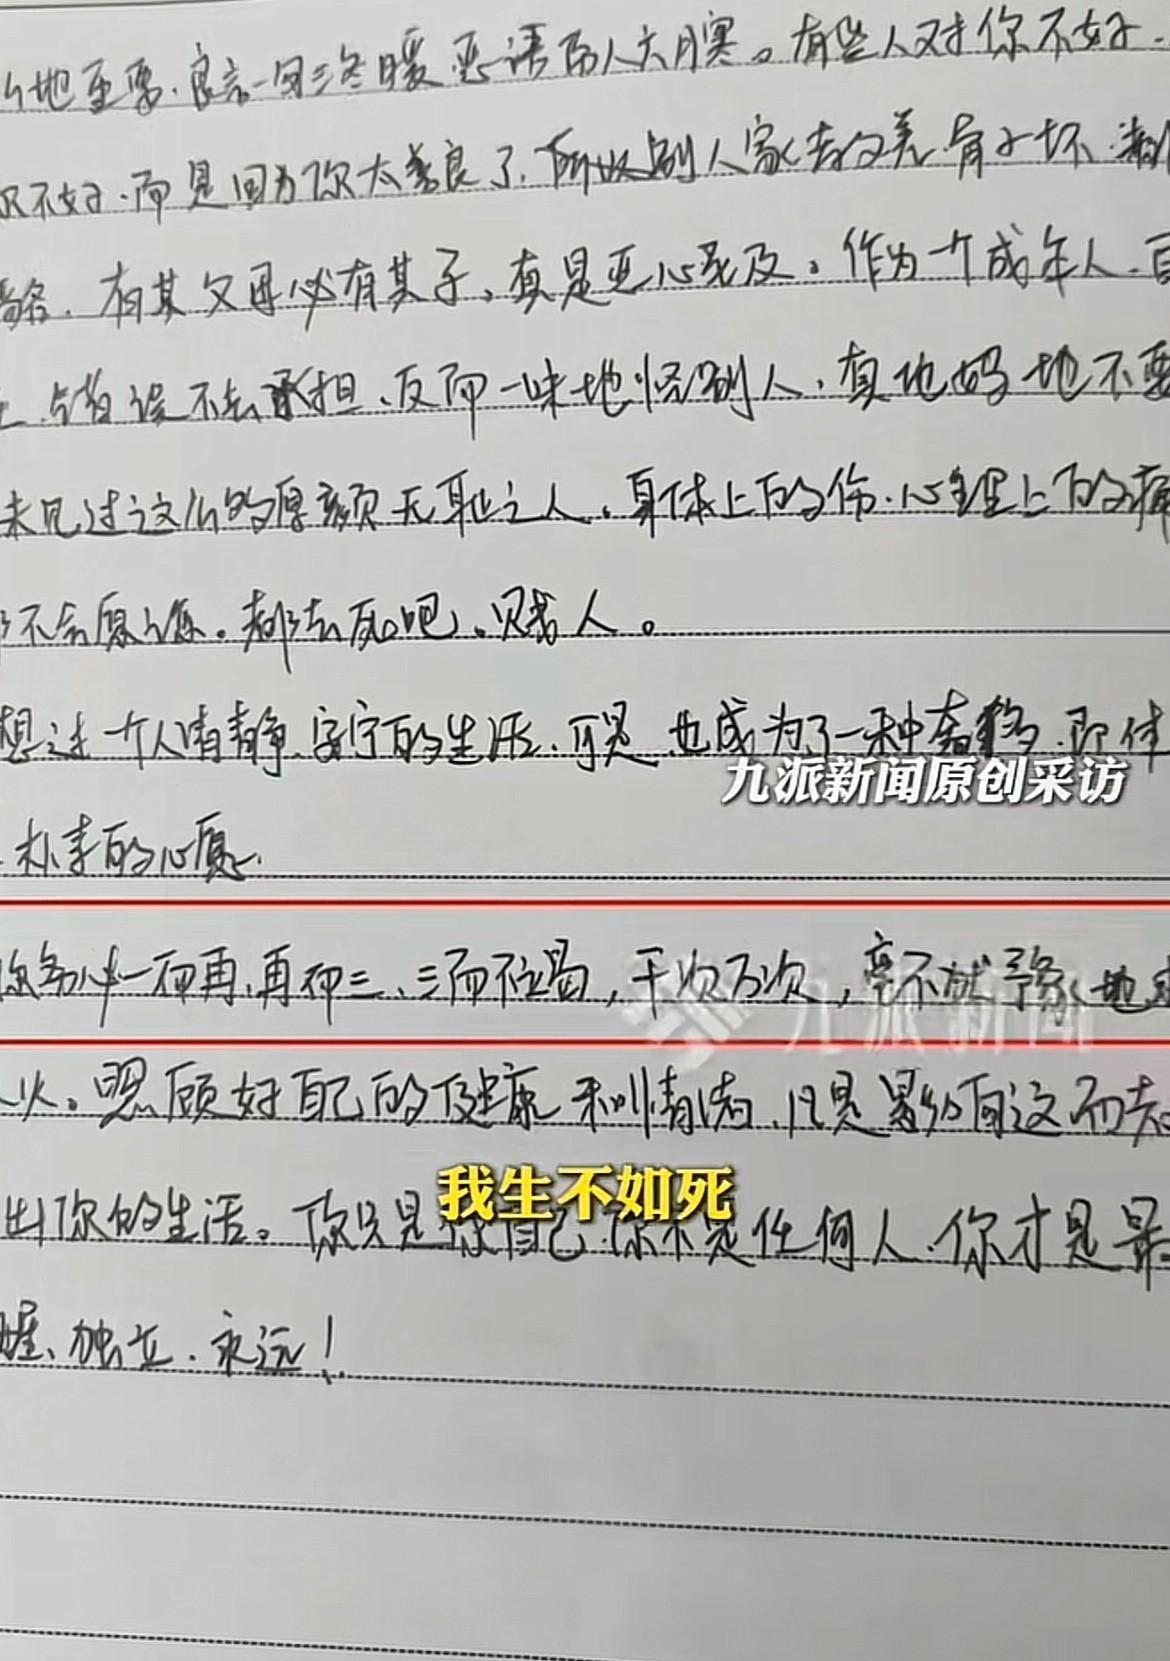 么地重要.良言一句三冬暖.恶语伤人六月寒。有些人对你不好.
不好.而是因为你太善良了.所以别人家
有其父母必有其子。真是恶心死及。作为一个成年人.
错误不去承担.反而一味地怪别人.真他妈地不要
未见过这么的厚颜无耻之人。身体上的伤.心理上的痛
不会原谅。都去死吧。贱人。
想过一个人清静.安宁的生活.可是也成为了一种奢侈.即使
九派新闻原创采访
朴素的心愿.
你务必一而再,再而三、三而不竭,千次万次,毫不犹豫地
九派新闻
火。照顾好自己的健康和情绪.但是
我生不如死
出你的生活。你只是你自己.你不是任何人.你才是最
醒、独立.永远!